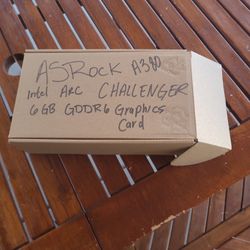 ASRock A380
Intel ARC CHALLENGER
6 GB GDDR6 Graphics
Card